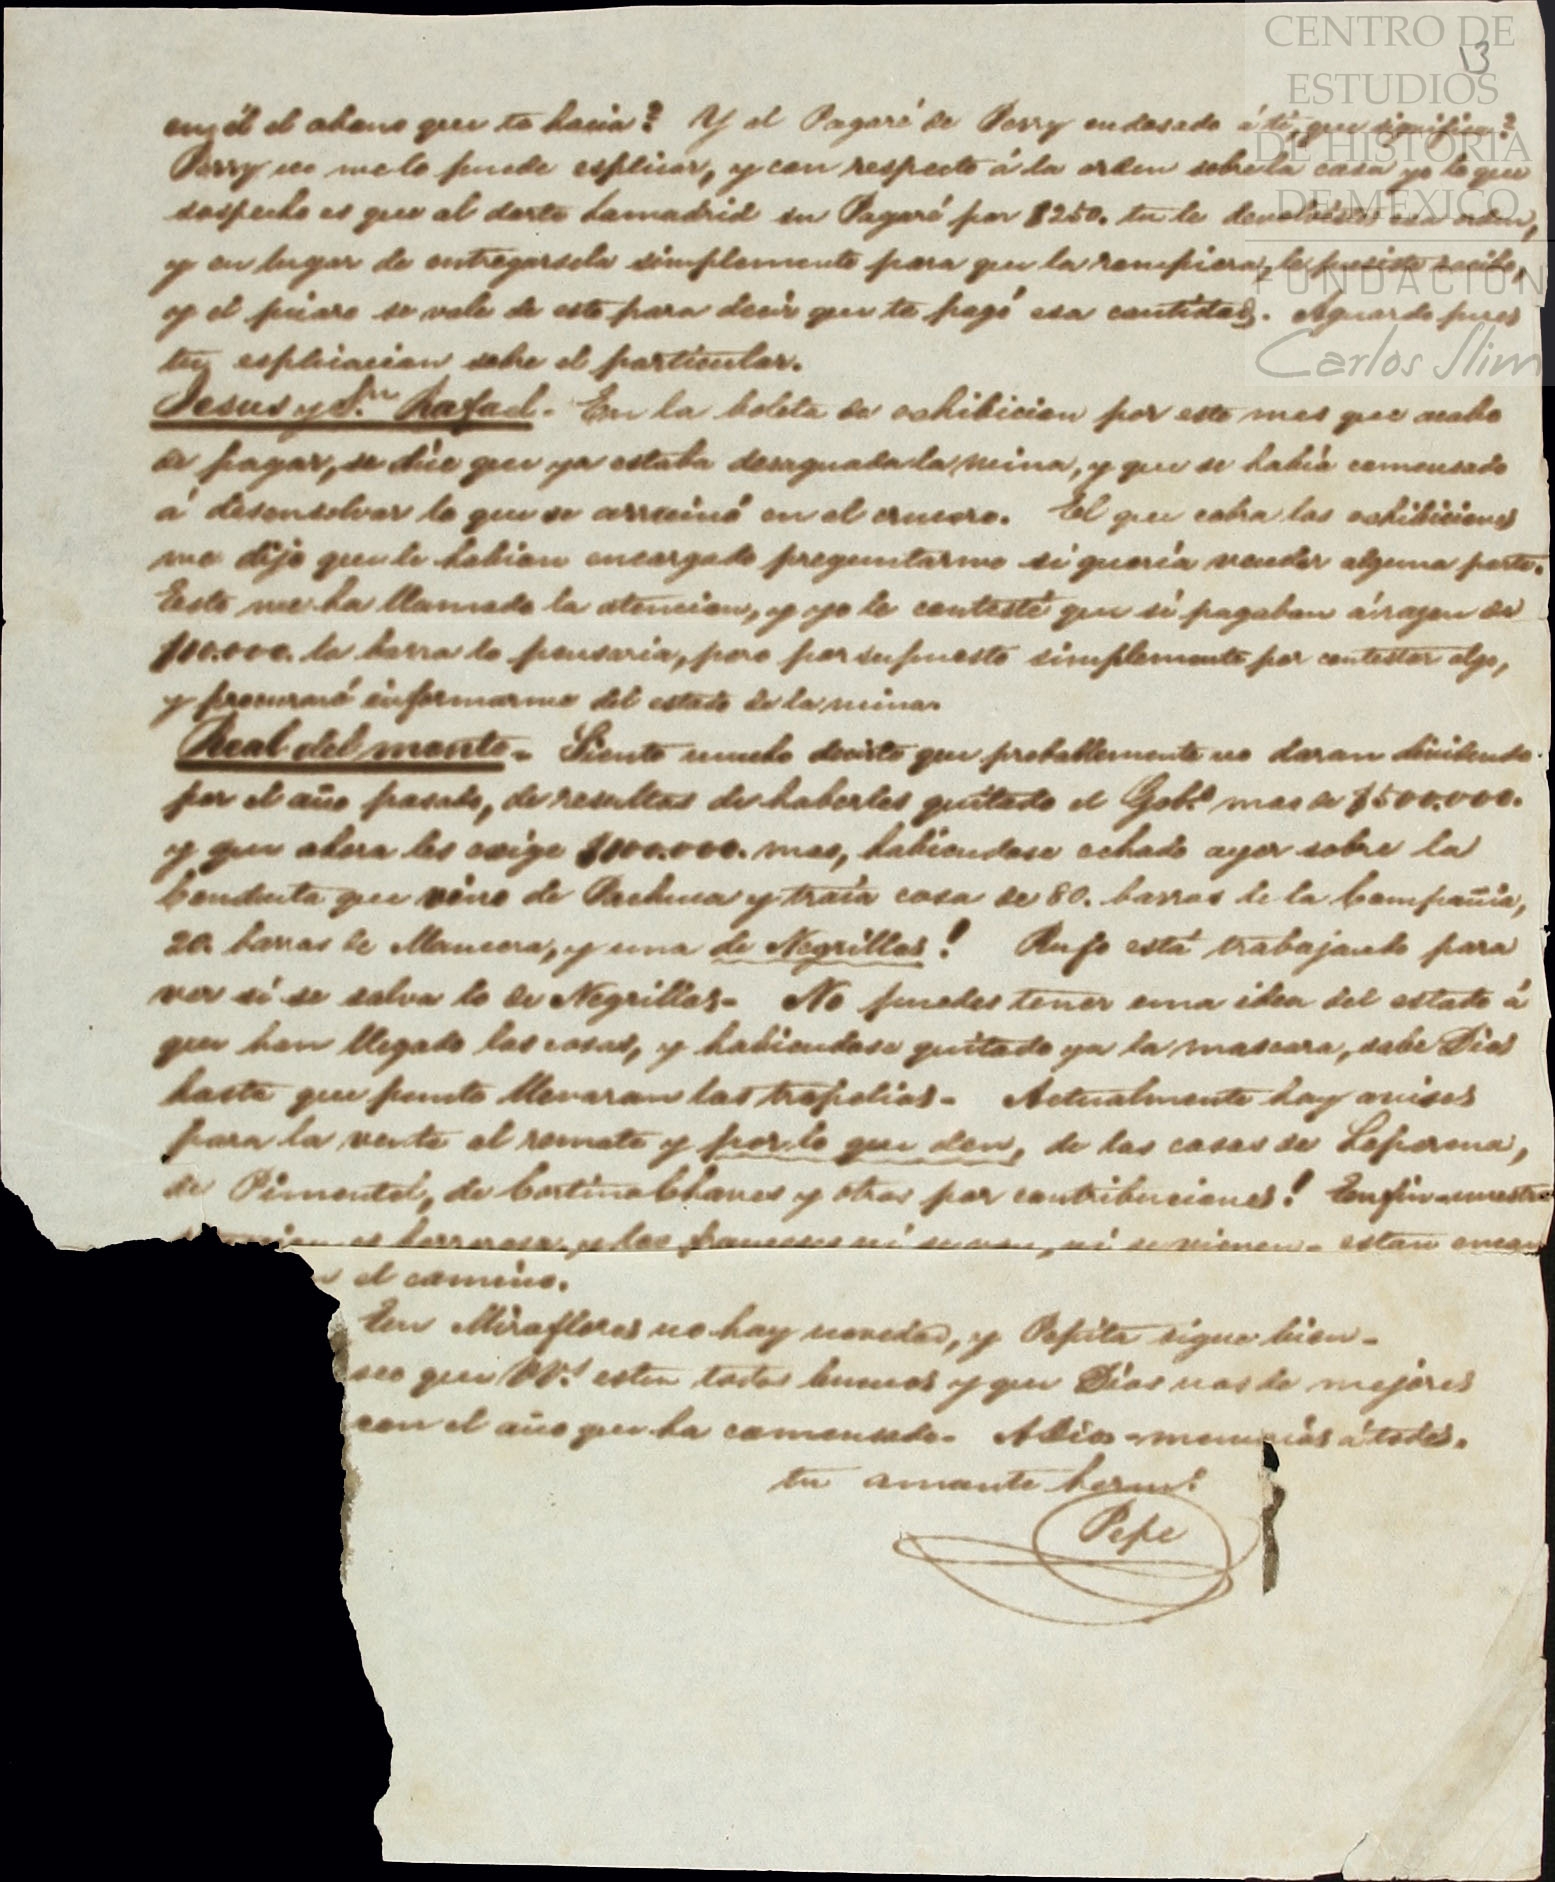 CENTRO DE
ESTUDIOS
DE HISTORIA
DE MEXICO
FUNDACIÓN
Carlos Slim
13
en él el abono que te hacia? Y el Pagaré de Perry endosado á ti, que significa?
Perry no me lo puede esplicar, y con respecto á la orden sobre la casa yo lo que
sospecho es que al darte Lamadrid su Pagaré por $250. tu le devolviste esa orden,
y en lugar de entregarsela simplemente para que la rompiera, le pusiste recibo,
y el pícaro se vale de esto para decir que te pagó esa cantidad. Aguardo pues
tu esplicacion sobre el particular.
Jesus y Sn. Rafael. En la boleta de exhibicion por este mes que acabo
de pagar, se dice que ya estaba desaguada la mina, y que se había comensado
á desensolvar lo que se arruinó en el crucero. El que cobra las exhibiciones
me dijo que le habian encargado preguntarme si queria vender alguna parte.
Esto me ha llamado la atencion, y yo le contesté que si pagaban á razon de
$10.000. la barra lo pensaria, pero por supuesto simplemente por contestar algo,
y procuraré informarme del estado de la mina.
Real del monte. Siento mucho decirte que probablemente no daran dividendo
por el año pasado, de resultas de haberles quitado el Gob.º mas de $500.000.
y que ahora les exige $100.000. mas, habiendose echado ayer sobre la
Conducta que vino de Pachuca y traía cosa de 80. barras de la Compañia,
20. barras de Mancera, y una de Negrillas! Rufo está trabajando para
ver si se salva lo de Negrillas. No puedes tener una idea del estado á
que han llegado las cosas, y habiendose quitado ya la mascara, sabe Dios
hasta que punto llevaran las tropelias. Actualmente hay avisos
para la venta al remate y por lo que den, de las casas de Leperena,
de Pimentel, de Cortina Chaves y otros por contribuciones! En fin nuestra
es horrorosa, y los franceses ni se van, ni se vienen. estan
el camino.
En Miraflores no hay novedad, y Pepita sigue bien.
seo que VV.s esten todos buenos y que Dios nos de mejores
con el año que ha comensado. A Dios memorias á todos.
tu amante herm.º
Pepe